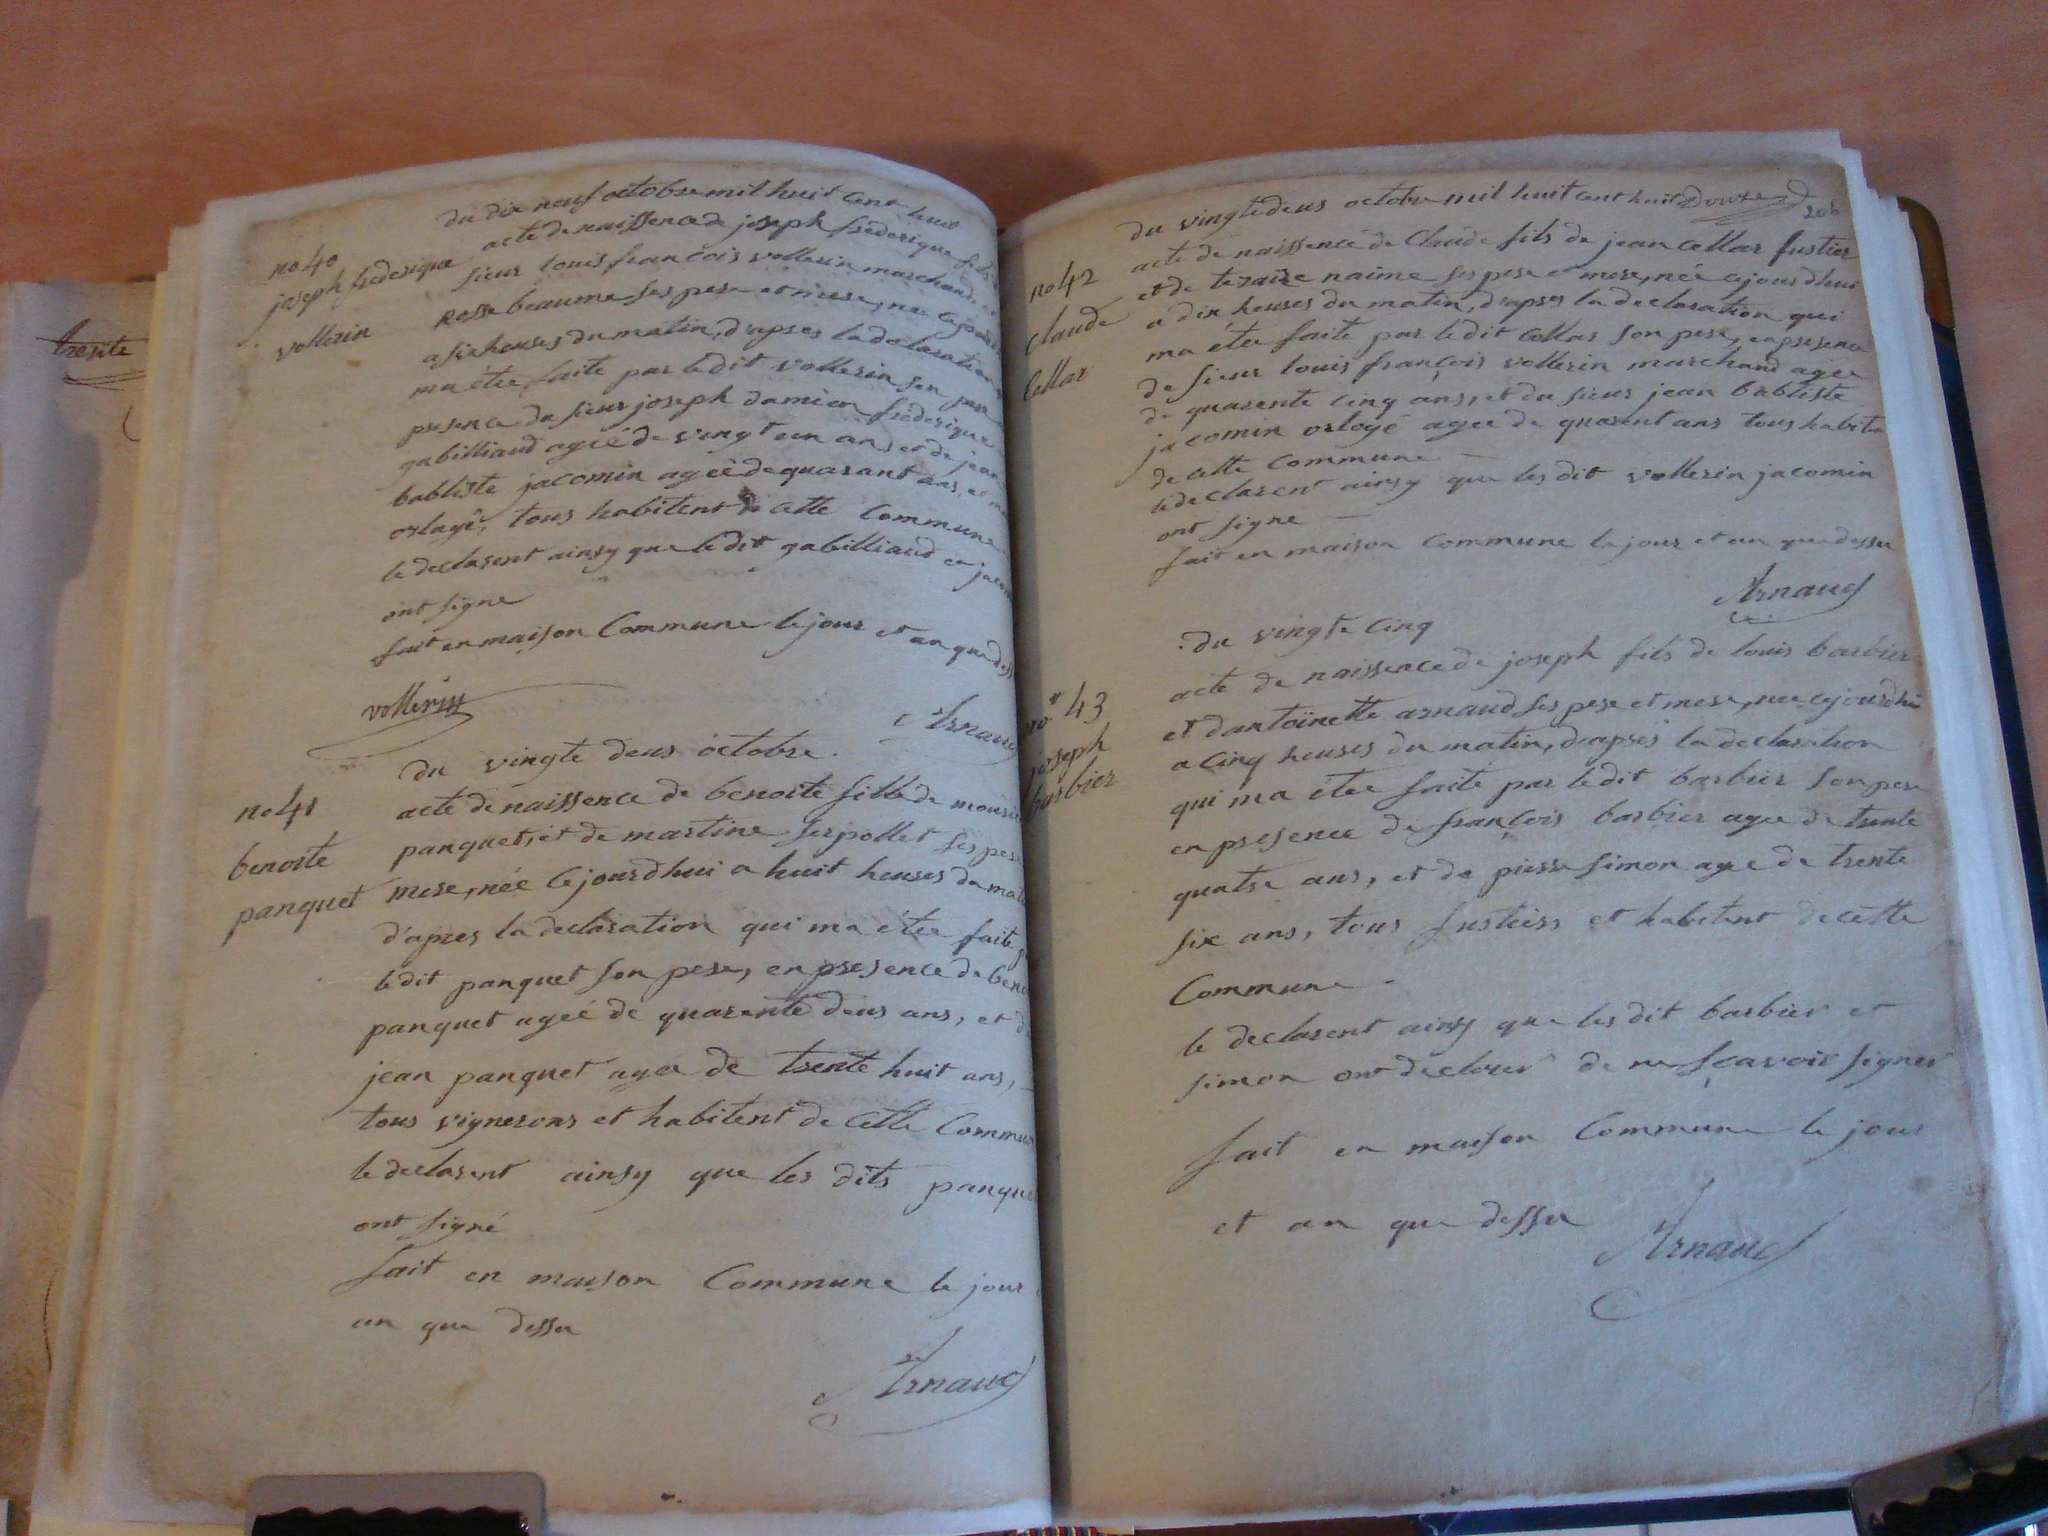 tresite
du dix neuf octobre mil huit cent huit
no 40
joseph frederique
vollerin
acte de naissence de joseph frederique fils
sieur louis francois vollerin marchand et
rosse beaume ses pere et mere, née cejourd
a six heuses du matin, d'apres la declaration
ma étee faite par le dit vollerin son pere
presence du sieur joseph damien frederique
gabilliaud ageé de vingt un ans et de jean
babtiste jacomin ageé de quarant ans, et
orlogé, tous habitent de cette Commune
le declarent ainsy que le dit gabilliaud et jacom
ont signe
fait en maison Commune le jour et an que dess
vollerin
Arnaud
du vingte deus octobre.
no 41
benoite
panquet
acte de naissence de benoite fille de
panquet, et de martine serpollet ses pere
mere, née cejourdhui a huit heuses du mat
d'apres la declaration qui ma étee faite
le dit panquet son pere, en presence de ben
panquet ageé de quarente deus ans, et d
jean panquet agee de trente huit ans,
tous vignerons et habitent de cette Commun
le declarent ainsy que les dits panque
ont signé
fait en maison Commune le jour
an que dessu
Arnaud
du vingtedeus octobre mil huit cent huit Douze
206
no 42
claude
Cellar
acte de naissence de Claude fils de jean Cellar fustier
et de teraize naime ses pere et mere, née cejourdhui
a dix heuses du matin, d'apres la declaration qui
ma étee faite par le dit Cellar son pere, en presence
de sieur louis françois vollerin marchand agee
de quarente cinq ans, et du sieur jean babtiste
jacomin orlogé agee de quarent ans tous habita
de cette Commune
le declarent ainsy que les dit vollerin jacomin
ont signe
fait en maison Commune le jour et an que dessu
Arnaud
du vingte cinq
no 43
joseph
barbier
acte de naissence de joseph fils de louis barbier
et dantoinette arnaud ses pere et mere, nee cejourdhui
a cinq heuses du matin, d'apres la declaration
qui ma étee faite par le dit barbier son pere
en presence de françois barbier agee de trente
quatre ans, et de pierre simon agee de trente
six ans, tous fustiers et habitent de cette
Commune
le declarent ainsy que les dit barbier et
simon ont declarer de ne sçavoir signer
fait en maison Commune le jour
et an que dessu
Arnaud